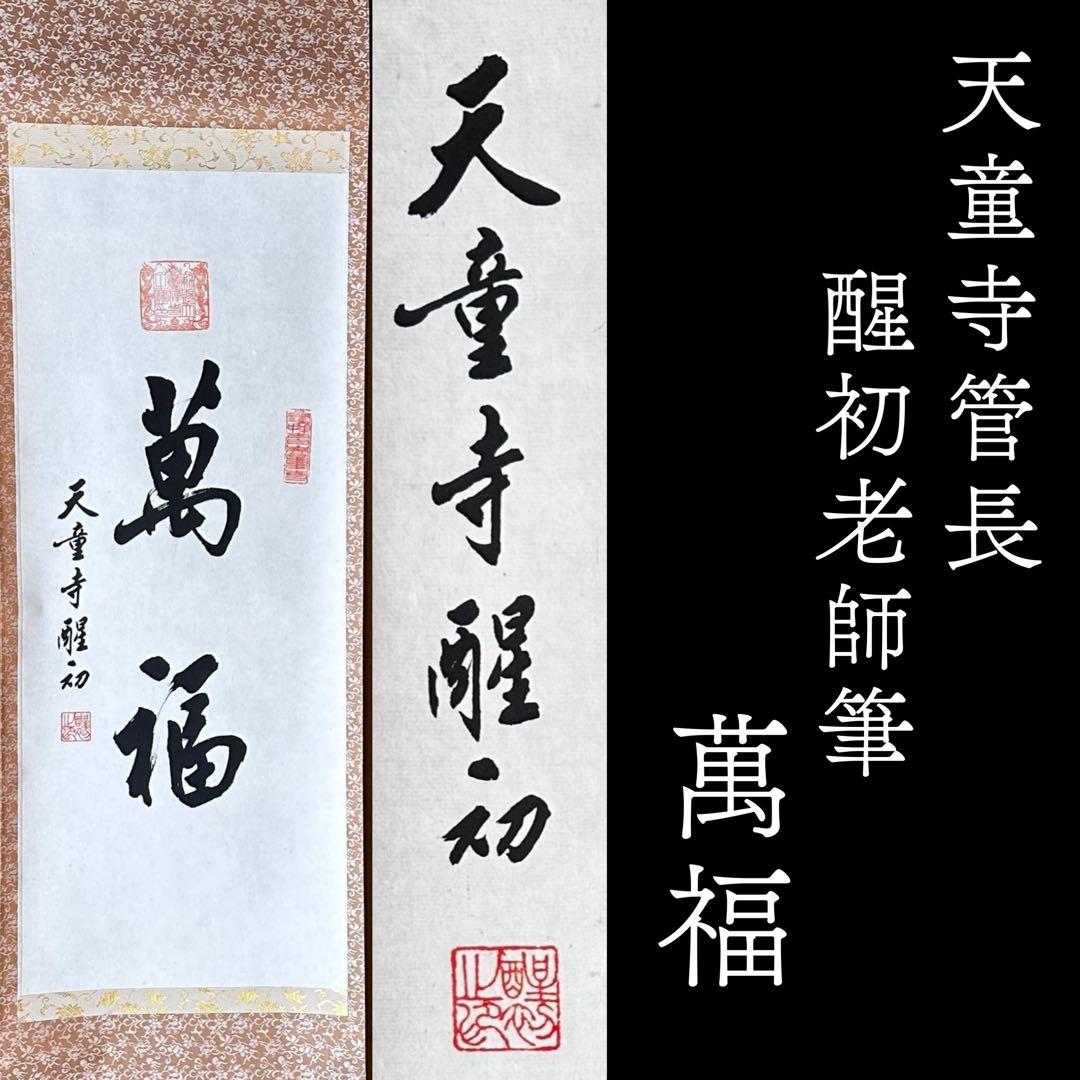 萬福
天童寺醒初
天童寺醒初
天童寺管長
醒初老師筆
萬福